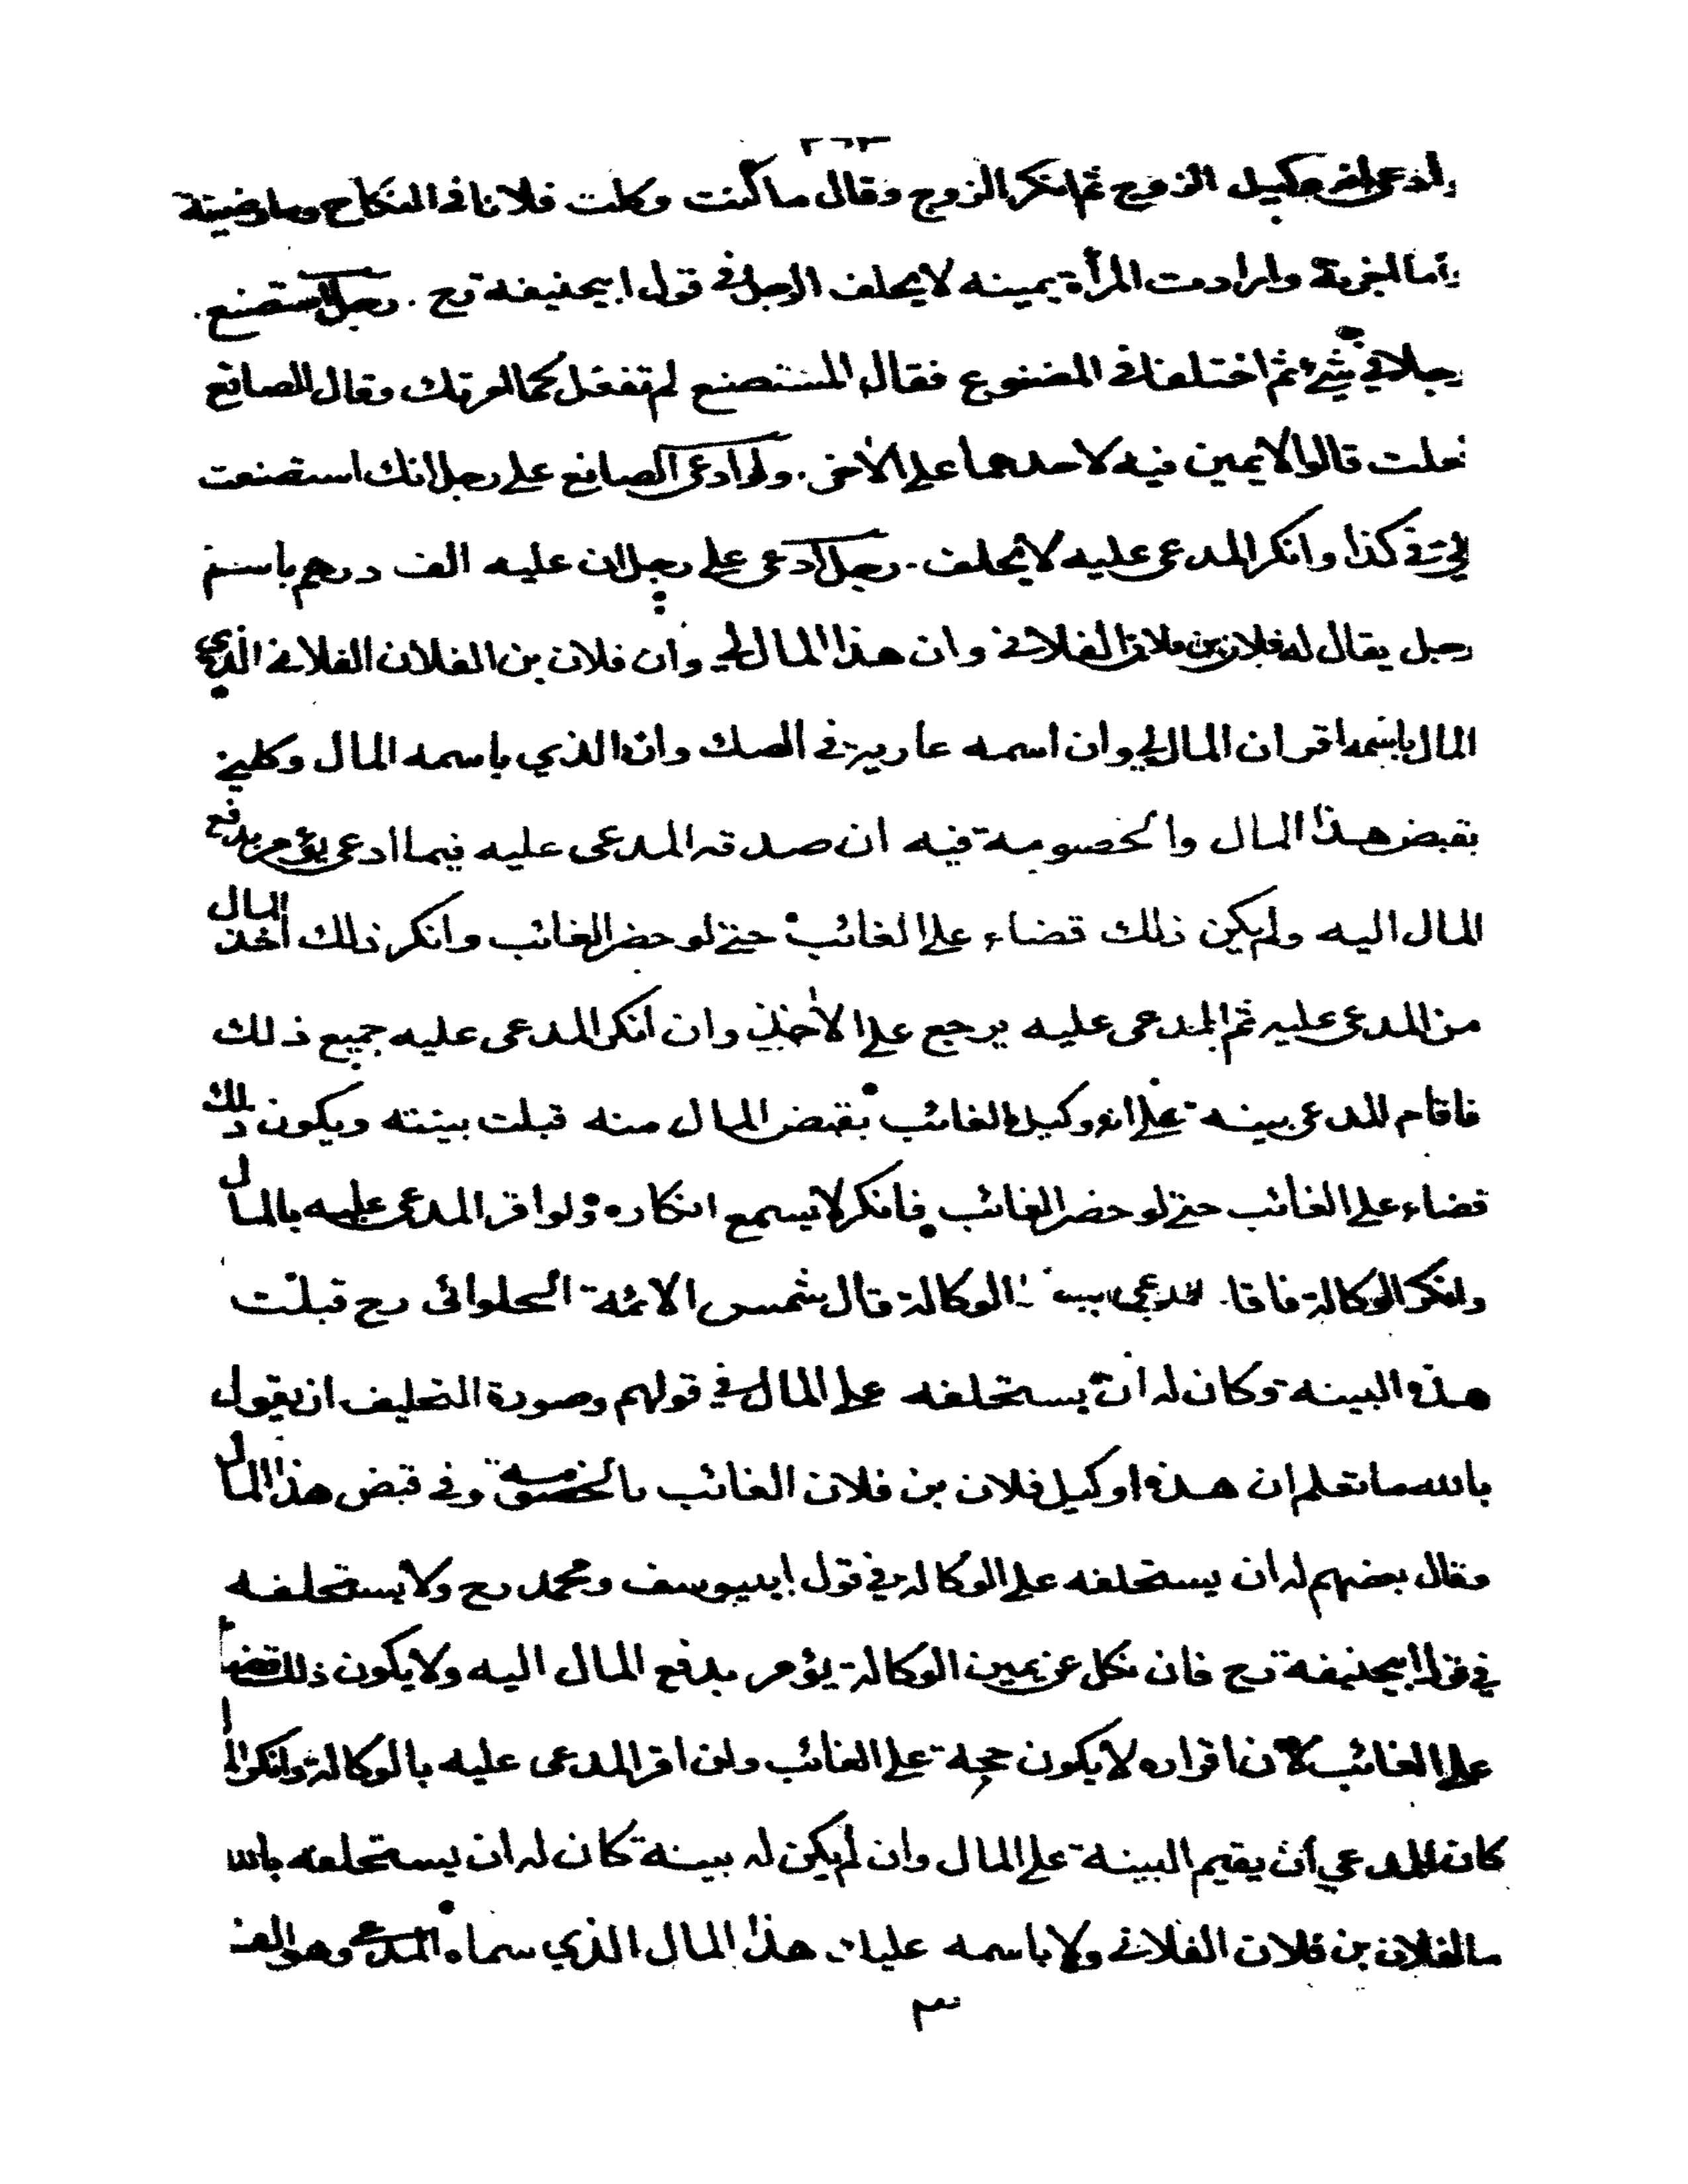 وادعى انه وكيل الزوج ثم انكر الزوج وقال ما كنت وكلت فلانا في النكاح وما رضيته
وارادت المرأة يمينه لا يحلف الرجل في قول ابيحنيفة رح . رجل استصنع
رجلا في شيء ثم اختلفا في المصنوع فقال المستصنع لم تفعل كما امرتك وقال الصانع
فعلت قالوا لا يمين فيه لاحدهما على الآخر . ولو ادعى الصانع على رجل انك استصنعت
في كذا وانكر المدعى عليه لا يحلف . رجل ادعى على رجل ان عليه الف درهم باسم
رجل يقال له فلان بن فلان الفلاني وان هذا المال لي وان فلان بن الفلان الفلاني الذي
المال باسمه اقر ان المال لي وان اسمه عارية في الصك وان الذي باسمه المال وكلني
بقبض هذا المال والخصومة فيه ان صدقه المدعى عليه فيما ادعى يؤمر بدفع
المال اليه ولم يكن ذلك قضاء على الغائب حتى لو حضر الغائب وانكر ذلك اخذ المال
من المدعى عليه ثم المدعى عليه يرجع على الآخذ وان انكر المدعى عليه جميع ذلك
فاقام المدعى بينة على انه وكيل الغائب بقبض المال منه قبلت بينته ويكون ذلك
قضاء على الغائب حتى لو حضر الغائب فانكر لا يسمع انكاره ولو اقر المدعى عليه بالمال
وانكر الوكالة فاقا المدعي الوكالة قال شمس الائمة الحلوائى رح قبلت
هذه البينة وكان له ان يستحلفه على المال في قولهم وصورة التحليف ان يقول
بالله ما تعلم ان هذا وكيل فلان بن فلان الغائب بالخصومة وفي قبض هذا المال
وقال بعضهم له ان يستحلفه على الوكالة في قول ابييوسف ومحمد رح ولا يستحلفه
في قول ابيحنيفة رح فان نكل عن يمين الوكالة يؤمر بدفع المال اليه ولا يكون ذلك قضا
على الغائب لان اقراره لا يكون حجة على الغائب ولئن اقر المدعى عليه بالوكالة وانكر الما
كان للمدعي ان يقيم البينة على المال وان لم يكن له بينة كان له ان يستحلفه بالله
ما لفلان بن فلان الفلاني ولا باسمه عليك هذا المال الذي سماه المدعى وهو الف